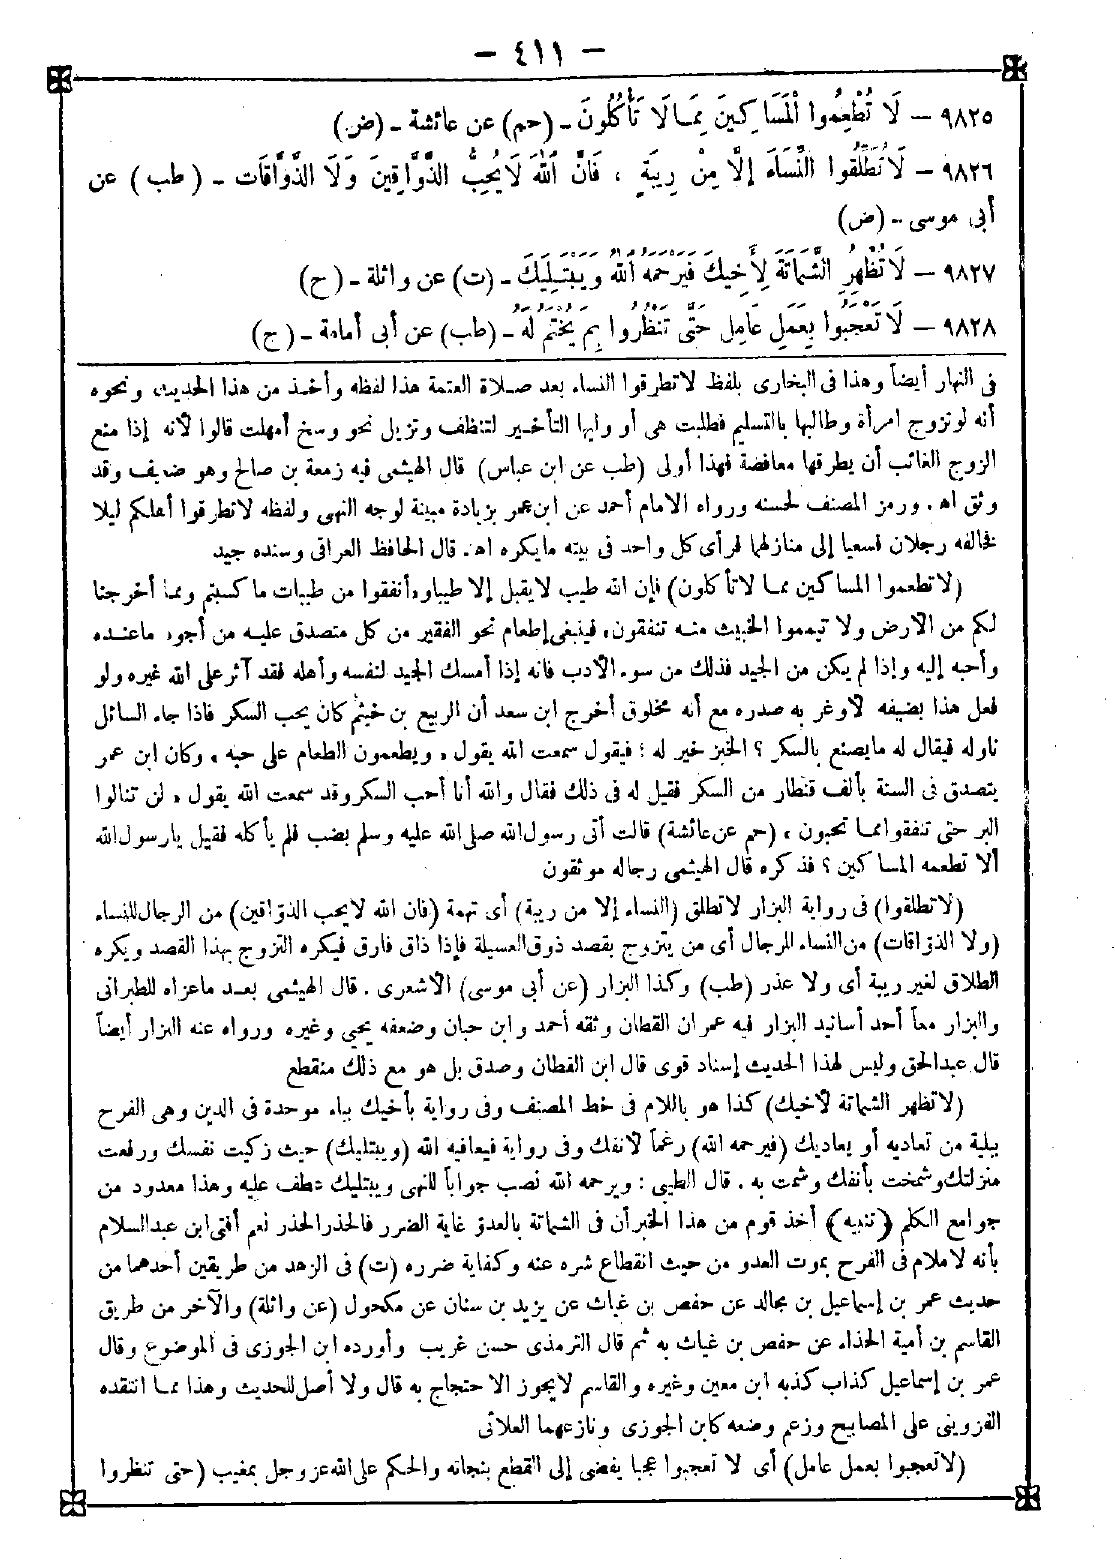 — ٤١١ —
٩٨٢٥ — لَا تُطْعِمُوا الْمَسَاكِينَ مِمَّا لَا تَأْكُلُونَ ـ (حم) عن عائشة ـ (ض)
٩٨٢٦ — لَا تُطَلِّقُوا النِّسَاءَ إِلَّا مِنْ رِيبَةٍ ، فَانَّ اللهَ لَا يُحِبُّ الذَّوَّاقِينَ وَلَا الذَّوَّاقَات ـ ( طب ) عن
أبى موسى ـ (ض)
٩٨٢٧ — لَا تُظْهِرِ الشَّمَاتَةَ لِأَخِيكَ فَيَرْحَمَهُ اللهُ وَيَبْتَلِيَكَ ـ (ت) عن واثلة ـ (ح)
٩٨٢٨ — لَا تَعْجَبُوا بِعَمَلِ عَامِلٍ حَتَّى تَنْظُرُوا بِمَ يُخْتَمُ لَهُ ـ (طب) عن أبى أمامة ـ (ح)
فى النهار أيضاً وهذا فى البخارى بلفظ لاتطرقوا النساء بعد صلاة العتمة هذا لفظه وأخذ من هذا الحديث ونحوه
أنه لو تزوج امرأة وطالبها بالتسليم فطلبت هى أو وليها التأخير لتتنظف وتزيل نحو وسخ أمهلت قالوا لأنه إذا منع
الزوج الغائب أن يطرقها معافضة فهذا أولى (طب عن ابن عباس) قال الهيثمى فيه زمعة بن صالح وهو ضعيف وقد
وثق اه. ورمز المصنف لحسنه ورواه الامام أحمد عن ابن عمر بزيادة مبينة لوجه النهى ولفظه لاتطرقوا أهلكم ليلا
فخالفه رجلان فسعيا إلى منازلهما فرأى كل واحد فى بيته مايكره اه. قال الحافظ العراقى وسنده جيد
(لاتطعموا المساكين مما لاتأكلون) فإن الله طيب لايقبل إلا طيبا وأنفقوا من طيبات ما كسبتم ومما أخرجنا
لكم من الارض ولا تيمموا الخبيث منه تنفقون، فينبغى إطعام نحو الفقير من كل متصدق عليه من أجود ماعنده
وأحبه إليه وإذا لم يكن من الجيد فذلك من سوء الأدب فانه إذا أمسك الجيد لنفسه وأهله فقد آثر على الله غيره ولو
فعل هذا بضيفه لأوغر به صدره مع أنه مخلوق أخرج ابن سعد أن الربيع بن خيثم كان يحب السكر فاذا جاء السائل
ناوله فيقال له مايصنع بالسكر ؟ الخبز خير له ؛ فيقول سمعت الله يقول ، ويطعمون الطعام على حبه ، وكان ابن عمر
يتصدق فى السنة بألف قنطار من السكر فقيل له فى ذلك فقال والله أنا أحب السكر وقد سمعت الله يقول ، لن تنالوا
البر حتى تنفقوا مما تحبون ، (حم عن عائشة) قالت أتى رسول الله صلى الله عليه وسلم بضب فلم يأكله فقيل يارسول الله
ألا تطعمه المساكين ؟ فذكره قال الهيثمى رجاله موثقون
(لاتطلقوا) فى رواية البزار لاتطلق (النساء إلا من ريبة) أى تهمة (فان الله لايحب الذواقين) من الرجال للنساء
(ولا الذواقات) من النساء للرجال أى من يتزوج بقصد ذوق العسيلة فإذا ذاق فارق فيكره التزوج بهذا القصد ويكره
الطلاق لغير ريبة أى ولا عذر (طب) وكذا البزار (عن أبى موسى) الأشعرى . قال الهيثمى بعد ماعزاه للطبرانى
والبزار معاً أحد أسانيد البزار فيه عمران القطان وثقه أحمد وابن حبان وضعفه يحيى وغيره ورواه عنه البزار أيضاً
قال عبدالحق وليس لهذا الحديث إسناد قوى قال ابن القطان وصدق بل هو مع ذلك منقطع
(لاتظهر الشماتة لأخيك) كذا هو باللام فى خط المصنف وفى رواية بأخيك بباء موحدة فى الدين وهى الفرح
ببلية من تعاديه أو يعاديك (فيرحمه الله) رغماً لأنفك وفى رواية فيعافيه الله (ويبتليك) حيث زكيت نفسك ورفعت
منزلتك وشمخت بأنفك وشمت به . قال الطيبى : ويرحمه الله نصب جواباً للنهى ويبتليك عطف عليه وهذا معدود من
جوامع الكلم (تنبيه) أخذ قوم من هذا الخبر أن فى الشماتة بالعدو غاية الضرر فالحذر الحذر نعم أفتى ابن عبدالسلام
بأنه لاملام فى الفرح بموت العدو من حيث انقطاع شره عنه وكفاية ضرره (ت) فى الزهد من طريقين أحدهما من
حديث عمر بن إسماعيل بن مجالد عن حفص بن غياث عن يزيد بن سنان عن مكحول (عن واثلة) والآخر من طريق
القاسم بن أمية الحذاء عن حفص بن غياث به ثم قال الترمذى حسن غريب وأورده ابن الجوزى فى الموضوع وقال
عمر بن إسماعيل كذاب كذبه ابن معين وغيره والقاسم لايجوز الاحتجاج به قال ولا أصل للحديث وهذا مما انتقده
القزوينى على المصابيح وزعم وضعه كابن الجوزى ونازعهما العلائى
(لاتعجبوا بعمل عامل) أى لا تعجبوا عجبا يفضى إلى القطع بنجاته والحكم على الله عز وجل بمغيب (حتى تنظروا